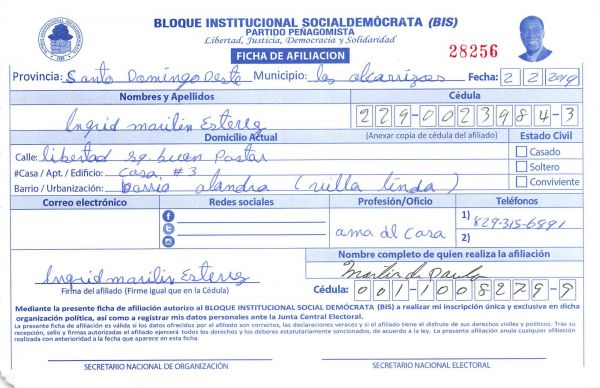 BLOQUE INSTITUCIONAL SOCIALDEMÓCRATA (BIS)
PARTIDO PEÑAGOMISTA
Libertad, Justicia, Democracia y Solidaridad
FICHA DE AFILIACION
28256
Provincia: Santo Domingo Oeste Municipio: los alcarrizos Fecha: 2 2 2019
Nombres y Apellidos Cédula
Ingrid marilin Esterez 229-0023984-3
Domicilio Actual (Anexar copia de cédula del afiliado) Estado Civil
Calle: libertad sq. buen Pastar Casado
#Casa / Apt. / Edificio: Casa #3 Soltero
Barrio / Urbanización: barrio alandra (villa linda) Conviviente
Correo electrónico Redes sociales Profesión/Oficio Teléfonos
ama del casa
1) 829-315-6891
2)
Nombre completo de quien realiza la afiliación
Ingrid marilin Esterez
Firma del afiliado (Firme igual que en la Cédula) Cédula: 001-1008279-9
Mediante la presente ficha de afiliación autorizo al BLOQUE INSTITUCIONAL SOCIAL DEMÓCRATA (BIS) a realizar mi inscripción única y exclusiva en dicha
organización política, así como a registrar mis datos personales ante la Junta Central Electoral.
La presente ficha de afiliación es válida si los datos ofrecidos por el afiliado son correctos, las declaraciones veraces y si el afiliado tiene el disfrute de sus derechos civiles y políticos. Tras su
recepción, sello y firmas autorizadas el afiliado ejercerá todos los derechos y los deberes estatutariamente sancionados, de acuerdo a la ley. La presente afiliación anula cualquier afiliación
realizada con anterioridad a la fecha que aparece en esta ficha.
SECRETARIO NACIONAL DE ORGANIZACIÓN SECRETARIO NACIONAL ELECTORAL